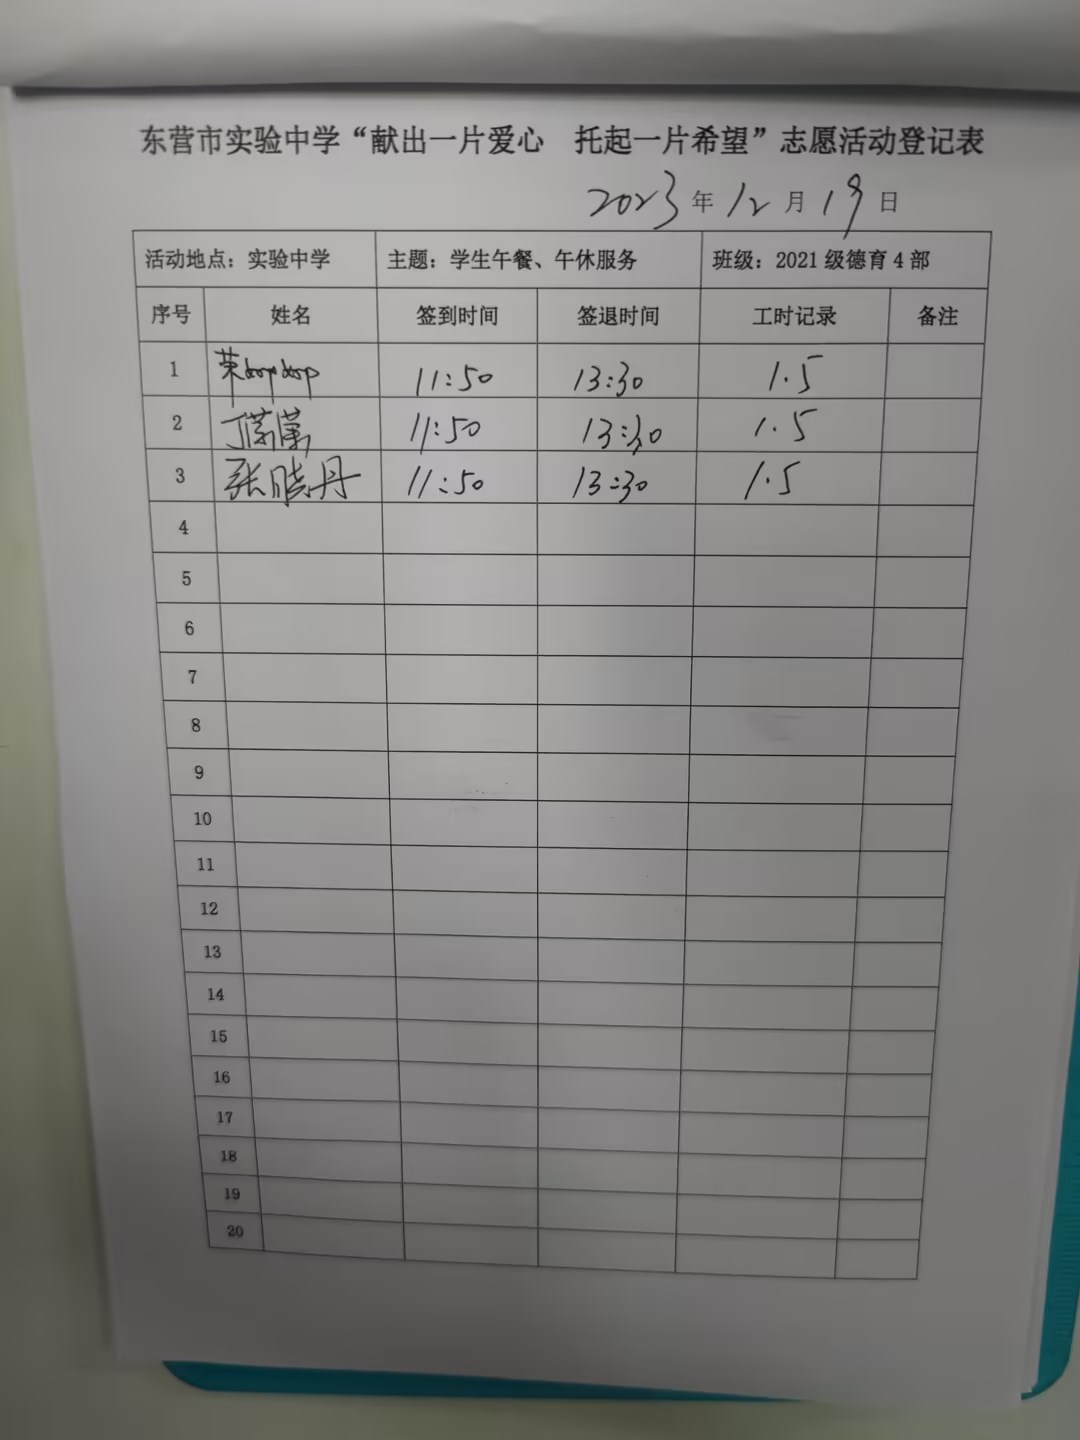 东营市实验中学“献出一片爱心　托起一片希望”志愿活动登记表
2023年12月19日
活动地点：实验中学 主题：学生午餐、午休服务 班级：2021级德育4部
序号 姓名 签到时间 签退时间 工时记录 备注
1 荣 11:50 13:30 1.5
2 丁 11:50 13:30 1.5
3 张晓丹 11:50 13:30 1.5
4
5
6
7
8
9
10
11
12
13
14
15
16
17
18
19
20